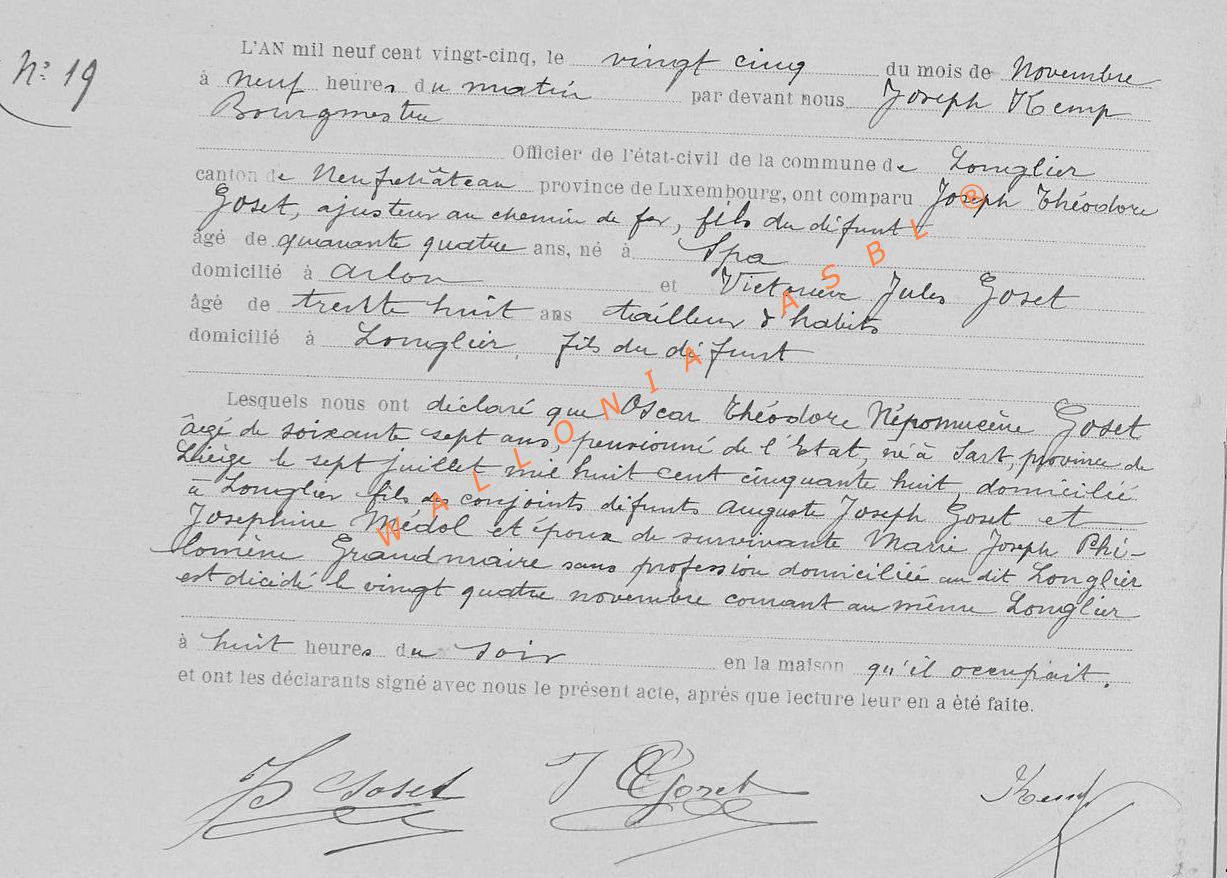 N° 19
L'AN mil neuf cent vingt-cinq, le vingt cinq du mois de Novembre
à neuf heures du matin par devant nous Joseph Kemp
Bourgmestre
Officier de l'état-civil de la commune de Longlier
canton de Neufchâteau province de Luxembourg, ont comparu Joseph Théodore
Goset, ajusteur au chemin de fer, fils du défunt
âgé de quarante quatre ans, né à Spa
domicilié à Arlon et Victorien Jules Goset
âgé de trente huit ans tailleur d'habits
domicilié à Longlier, fils du défunt
Lesquels nous ont déclaré que Oscar Théodore Népomucène Goset
âgé de soixante sept ans, pensionné de l'Etat, né à Sart, province de
Liège le sept juillet mil huit cent cinquante huit, domicilié
à Longlier fils des conjoints défunts Auguste Joseph Goset et
Josephine Médol et époux de survivante Marie Joseph Phi-
lomène Grandmaire sans profession domiciliée au dit Longlier
est décidé le vingt quatre novembre courant au même Longlier
à huit heures du soir en la maison qu'il occupait.
et ont les déclarants signé avec nous le présent acte, après que lecture leur en a été faite.
Goset J Goset Kemp
WALLONIA ASBL ®